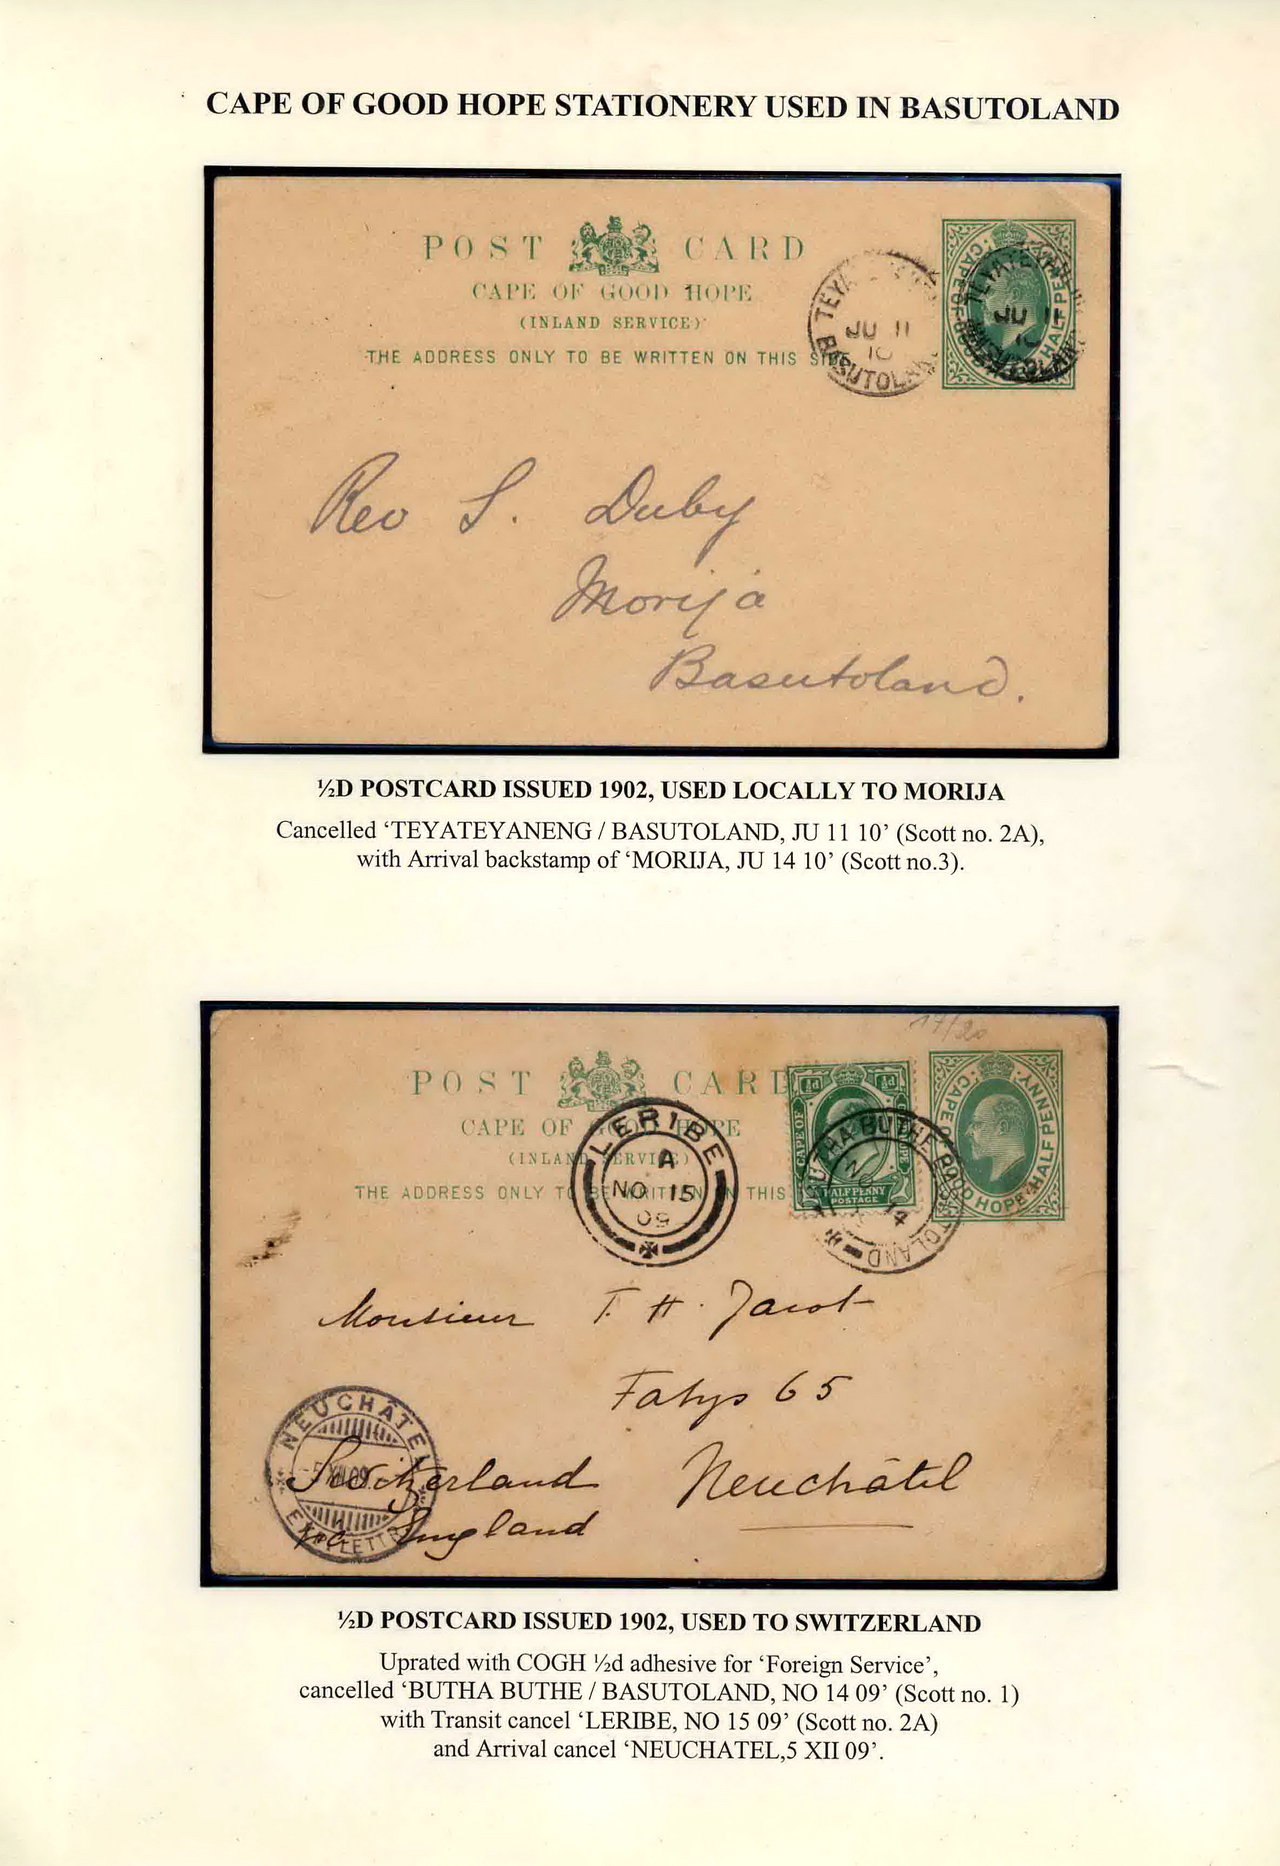 CAPE OF GOOD HOPE STATIONERY USED IN BASUTOLAND
POST CARD
CAPE OF GOOD HOPE
(INLAND SERVICE)
THE ADDRESS ONLY TO BE WRITTEN ON THIS SIDE
BASUTOLAN
JU 11
10
TEYATEYANE
JU 11
10
CAPE OF GOOD HOPE HALF PENNY
Rev S. Duby
Morija
Basutoland.
½D POSTCARD ISSUED 1902, USED LOCALLY TO MORIJA
Cancelled ‘TEYATEYANENG / BASUTOLAND, JU 11 10’ (Scott no. 2A),
with Arrival backstamp of ‘MORIJA, JU 14 10’ (Scott no.3).
17/20
POST CARD
CAPE OF GOOD HOPE
(INLAND SERVICE)
THE ADDRESS ONLY TO BE WRITTEN ON THIS
LERIBE
A
NO 15
09
½d ½d
CAPE OF GOOD HOPE
HALFPENNY
POSTAGE
BUTHA-BUTHE BASUTOLAND
NO 14
CAPE OF GOOD HOPE HALF PENNY
Monsieur T. H. Jacot
Fahys 65
NEUCHÂTEL
5 XII 09
Switzerland Neuchâtel
England
½D POSTCARD ISSUED 1902, USED TO SWITZERLAND
Uprated with COGH ½d adhesive for ‘Foreign Service’,
cancelled ‘BUTHA BUTHE / BASUTOLAND, NO 14 09’ (Scott no. 1)
with Transit cancel ‘LERIBE, NO 15 09’ (Scott no. 2A)
and Arrival cancel ‘NEUCHATEL,5 XII 09’.